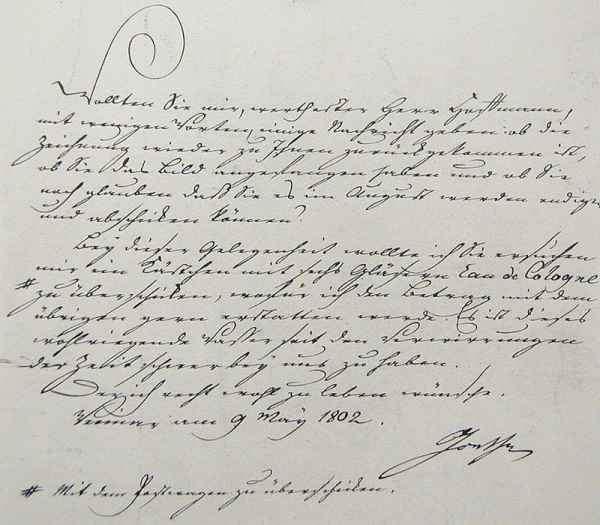 Wollten Sie mir, werthester Herr Hoffmann,
mit wenigen Worten, einige Nachricht geben: ob die
Zeichnung wieder zu Ihnen zurück gekommen ist,
ob Sie das Bild angefangen haben und ob Sie
noch glauben daß Sie es im August werden endigen
und abschicken können?
Bey dieser Gelegenheit wollte ich Sie ersuchen
mir ein Kästchen mit sechs Gläsern Eau de Cologne
# zu überschicken, wofür ich den Betrag mit dem
übrigen gern erstatten werde. Es ist dieses
wohlriechende Wasser seit den Verwirrungen
der Zeit schwer bey uns zu haben.
Der ich recht wohl zu leben wünsche.
Weimar am 9 May 1802.
Goethe
# Mit dem Postwagen zu überschicken.